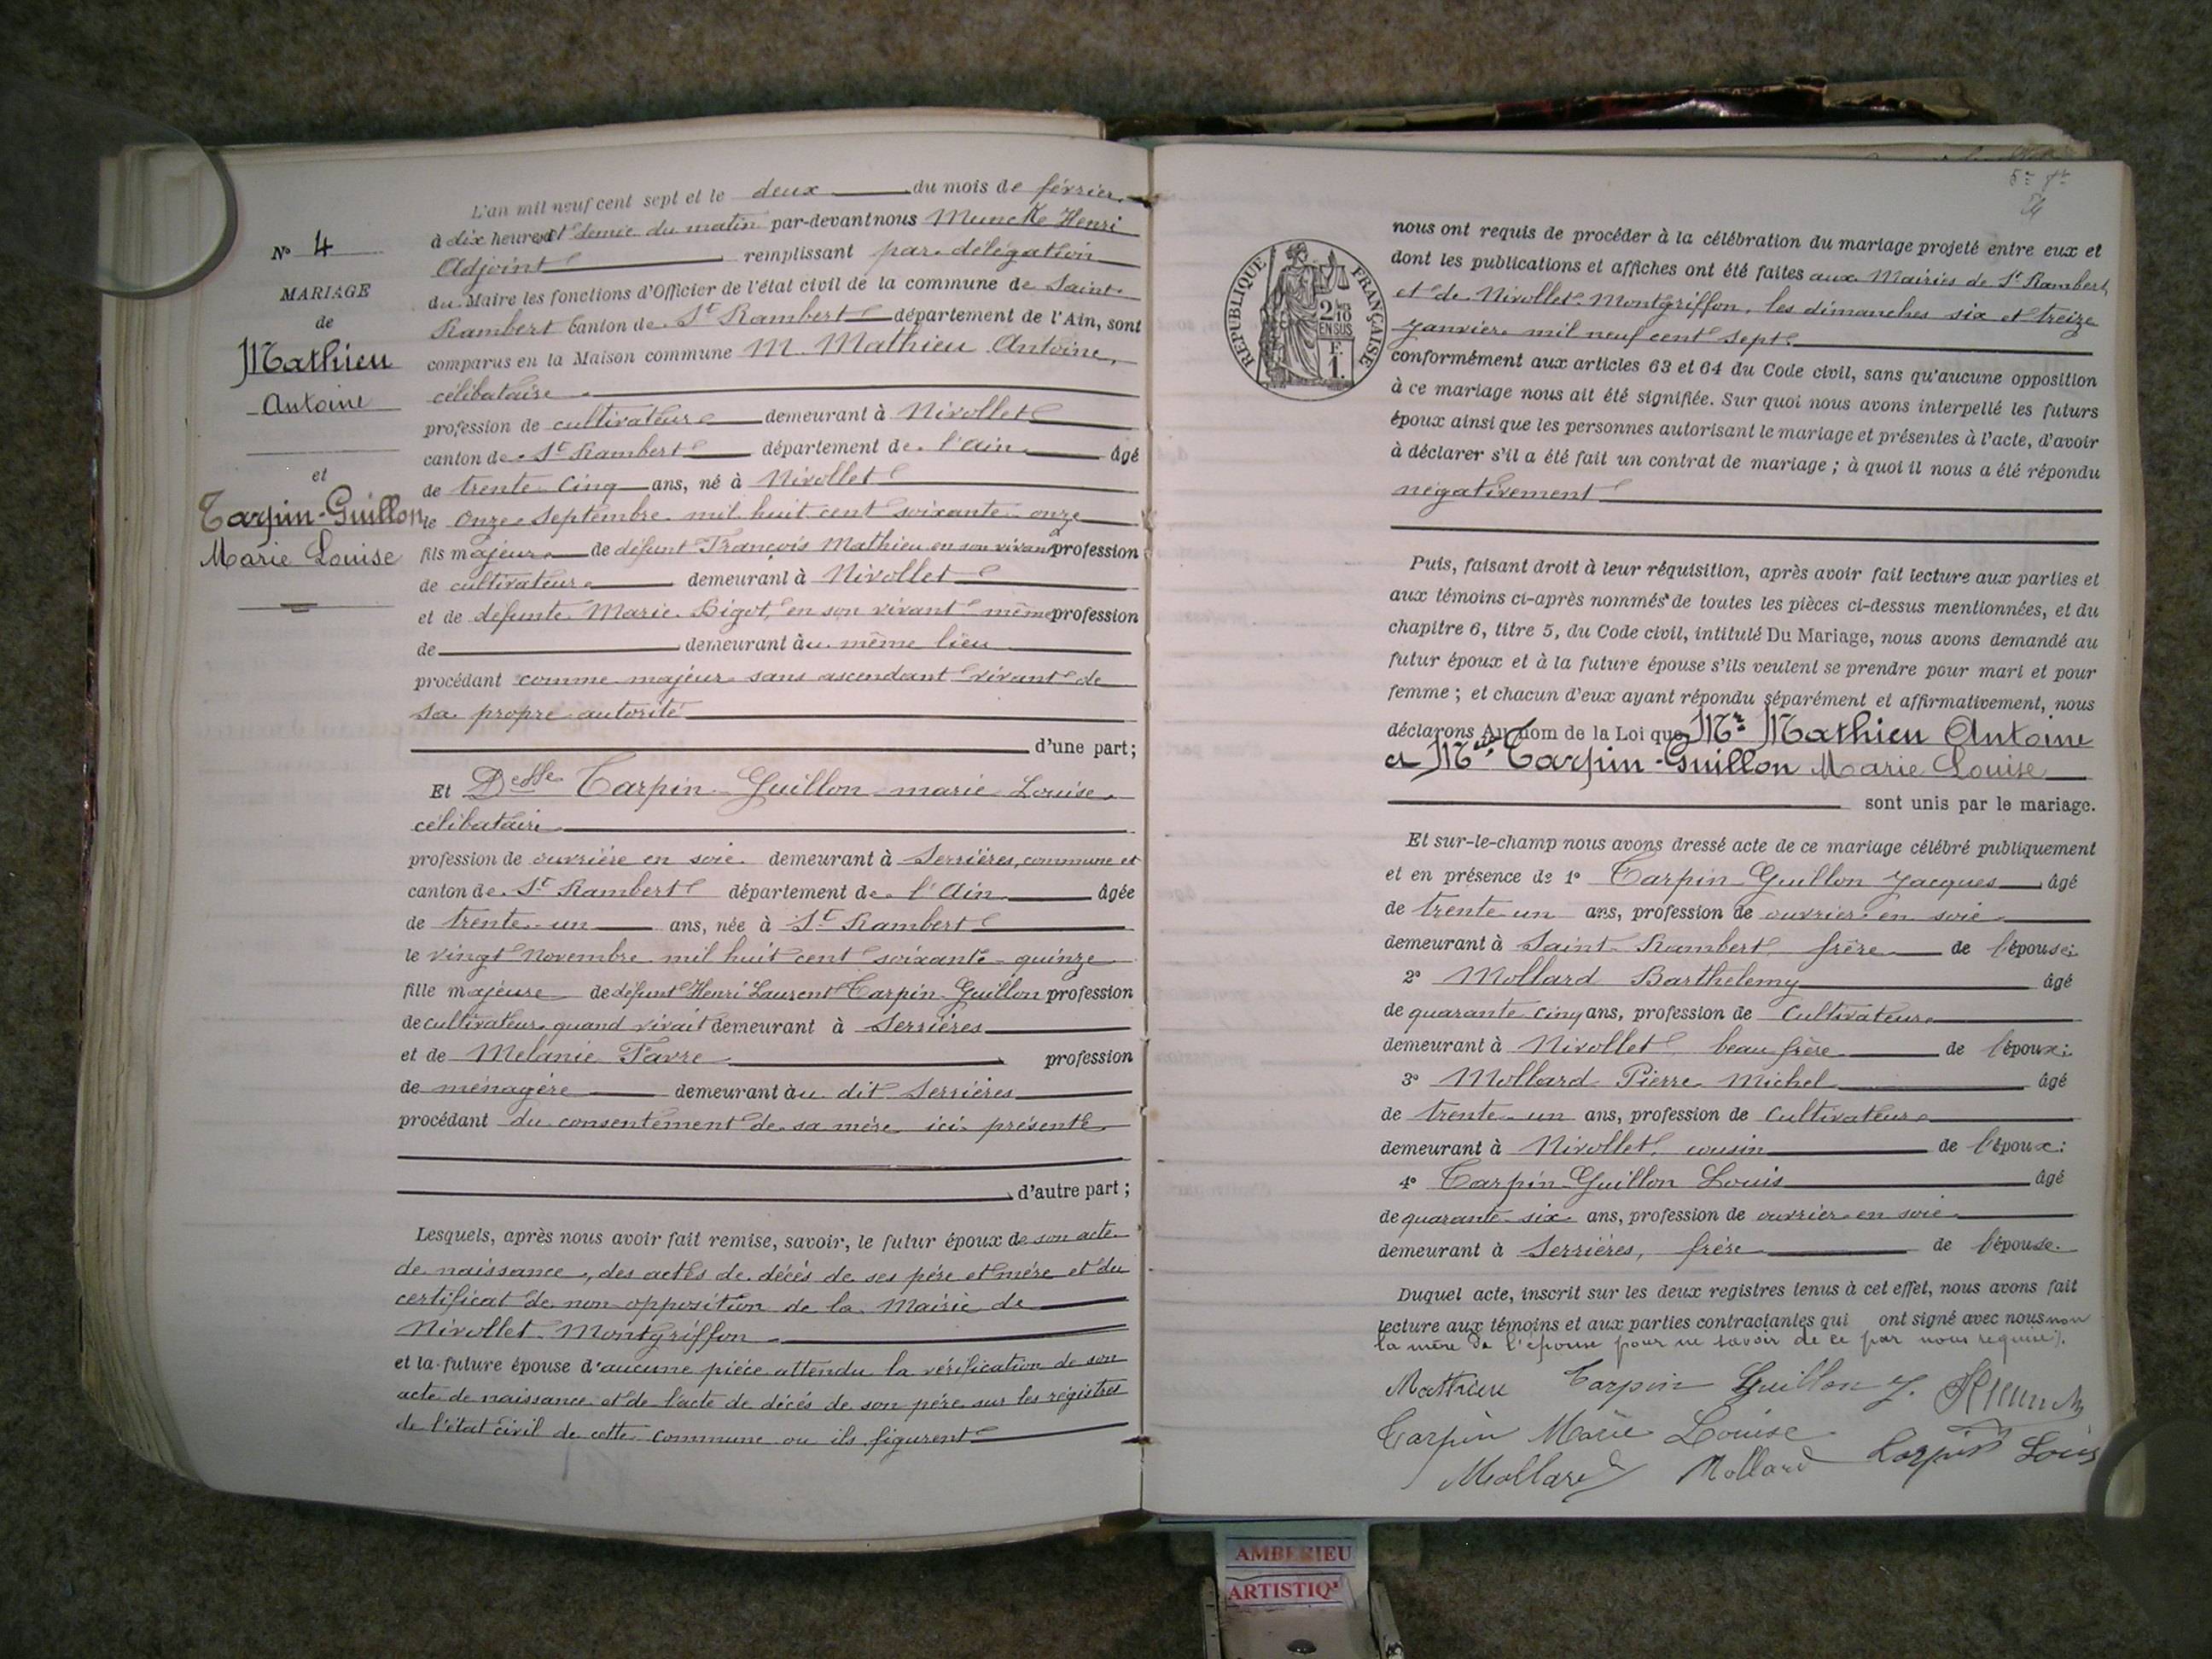 N° 4
MARIAGE
de
Mathieu
Antoine
et
Tarpin-Guillon
Marie Louise
L'an mil neuf cent sept et le deux du mois de février
à dix heures et demie du matin par-devant nous Muncke Henri
Adjoint remplissant par délégation
du Maire les fonctions d'Officier de l'état civil de la commune de Saint-
Rambert Canton de St Rambert département de l'Ain, sont
comparus en la Maison commune M. Mathieu Antoine,
célibataire
profession de cultivateur demeurant à Nivollet
canton de St Rambert département de l'Ain âgé
de trente-cinq ans, né à Nivollet
le onze Septembre mil huit cent soixante-onze
fils majeur de défunt François Mathieu en son vivant profession
de cultivateur demeurant à Nivollet
et de défunte Marie Bigot, en son vivant même profession
de demeurant au même lieu
procédant comme majeur sans ascendant vivant de
sa propre autorité
d'une part;
Et Delle Tarpin-Guillon marie Louise
célibataire
profession de ouvrière en soie demeurant à Serrières, commune et
canton de St Rambert département de l'Ain âgée
de trente-un ans, née à St Rambert
le vingt Novembre mil huit cent soixante-quinze
fille majeure de défunt Henri Laurent Tarpin-Guillon profession
de cultivateur quand vivait demeurant à Serrières
et de Mélanie Favre profession
de ménagère demeurant au dit Serrières
procédant du consentement de sa mère ici présente
d'autre part;
Lesquels, après nous avoir fait remise, savoir, le futur époux de son acte
de naissance, des actes de décés de ses père et mère et du
certificat de non opposition de la Mairie de
Nivollet-Montgriffon
et la future épouse d'aucune pièce attendu la vérification de son
acte de naissance et de l'acte de décés de son père sur les registres
de l'état civil de cette commune ou ils figurent
RÉPUBLIQUE FRANÇAISE
2/10
EN SUS
F.
1.
nous ont requis de procéder à la célébration du mariage projeté entre eux et
dont les publications et affiches ont été faites aux Mairies de St Rambert
et de Nivollet-Montgriffon, les dimanches six et treize
janvier mil neuf cent sept
conformément aux articles 63 et 64 du Code civil, sans qu'aucune opposition
à ce mariage nous ait été signifiée. Sur quoi nous avons interpellé les futurs
époux ainsi que les personnes autorisant le mariage et présentes à l'acte, d'avoir
à déclarer s'il a été fait un contrat de mariage; à quoi il nous a été répondu
négativement
Puis, faisant droit à leur réquisition, après avoir fait lecture aux parties et
aux témoins ci-après nommés de toutes les pièces ci-dessus mentionnées, et du
chapitre 6, titre 5, du Code civil, intitulé Du Mariage, nous avons demandé au
futur époux et à la future épouse s'ils veulent se prendre pour mari et pour
femme; et chacun d'eux ayant répondu séparément et affirmativement, nous
déclarons Au nom de la Loi que Mr Mathieu Antoine
et Melle Tarpin-Guillon Marie Louise
sont unis par le mariage.
Et sur-le-champ nous avons dressé acte de ce mariage célébré publiquement
et en présence de 1° Tarpin-Guillon Jacques âgé
de trente-un ans, profession de ouvrier en soie
demeurant à Saint-Rambert, frère de l'épouse;
2° Mollard Barthelemy âgé
de quarante-cinq ans, profession de Cultivateur
demeurant à Nivollet, beau frère de l'époux;
3° Mollard Pierre Michel âgé
de trente-un ans, profession de Cultivateur
demeurant à Nivollet, cousin de l'époux:
4° Tarpin-Guillon Louis âgé
de quarante-six ans, profession de ouvrier en soie
demeurant à Serrières, frère de l'épouse.
Duquel acte, inscrit sur les deux registres tenus à cet effet, nous avons fait
lecture aux témoins et aux parties contractantes qui ont signé avec nous non
la mère de l'épouse pour ne savoir de ce par nous requise).
Mathieu Tarpin Guillon J.
Tarpin Marie Louise Tarpin Louis
Mollard Mollard
AMBERIEU
ARTISTIQ'